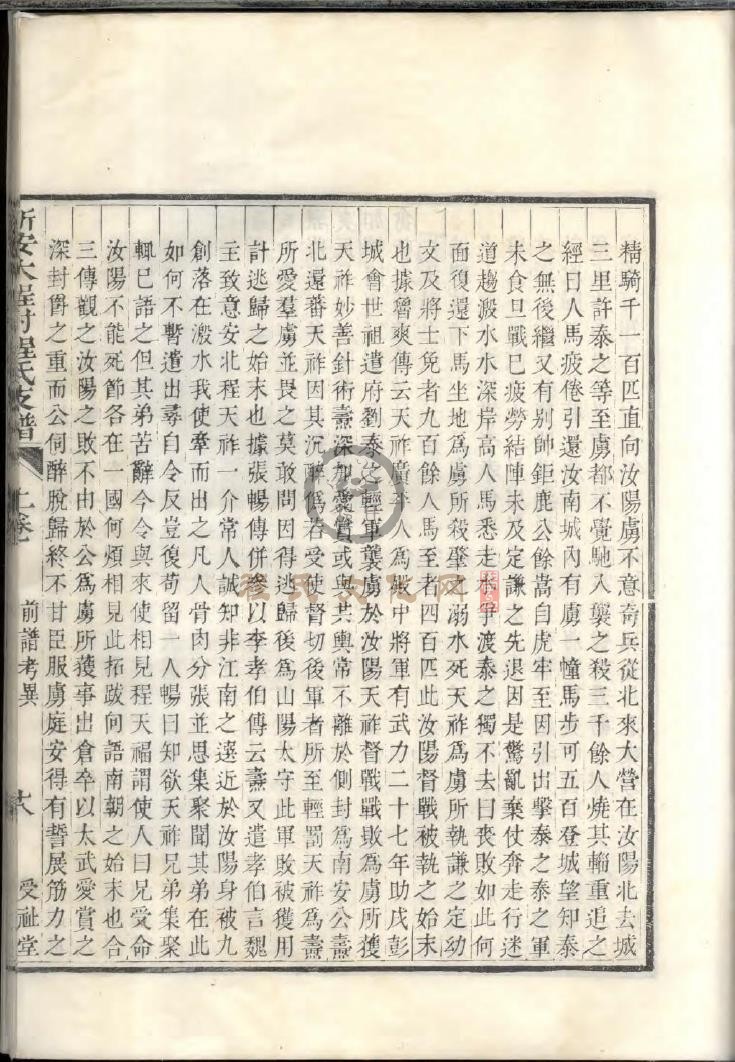 精騎千一百匹直向汝陽虜不意奇兵從北來大營在汝陽北去城
三里許泰之等至虜都不覺馳入襲之殺三千餘人燒其輜重追之
經日人馬疲倦引還汝南城內有虜一幢馬步可五百登城望知泰
之無後繼又有别帥鉅鹿公餘嵩自虎牢至因引出擊泰之泰之軍
未食旦戰已疲勞結陣未及定謙之先退因是驚亂棄仗奔走行迷
道趨溵水水深岸高人馬悉走水爭渡泰之獨不去曰喪敗如此何
面復還下馬坐地爲虜所殺肇之溺水死天祚爲虜所執謙之定幼
文及將士免者九百餘人馬至者四百匹此汝陽督戰被執之始末
也據魯爽傳云天祚廣平人爲殿中將軍有武力二十七年助戍彭
城會世祖遣府劉泰之輕軍襲虜於汝陽天祚督戰戰敗爲虜所獲
天祚妙善針術燾深加愛賞或與共輿常不離於側封爲南安公燾
北還蕃天祚因其沉醉僞若受使督切後軍者所至輕罰天祚爲燾
所愛羣虜並畏之莫敢問因得逃歸後爲山陽太守此軍敗被獲用
計逃歸之始末也據張暢傳併參以李孝伯傳云燾又遣孝伯言魏
主致意安北程天祚一介常人誠知非江南之選近於汝陽身被九
創落在溵水我使牽而出之凡人骨肉分張並思集聚聞其弟在此
如何不暫遣出尋自令反豈復苟留一人暢曰知欲天祚兄弟集聚
輒已語之但其弟苦辭今令與來使相見程天福謂使人曰兄受命
汝陽不能死節各在一國何煩相見此拓跋何語南朝之始末也合
三傳觀之汝陽之敗不由於公爲虜所獲事出倉卒以太武愛賞之
深封爵之重而公伺醉脫歸終不甘臣服虜庭安得有誓展筋力之
新安大程村程氏支譜 上卷 前譜考異 十八 受祉堂